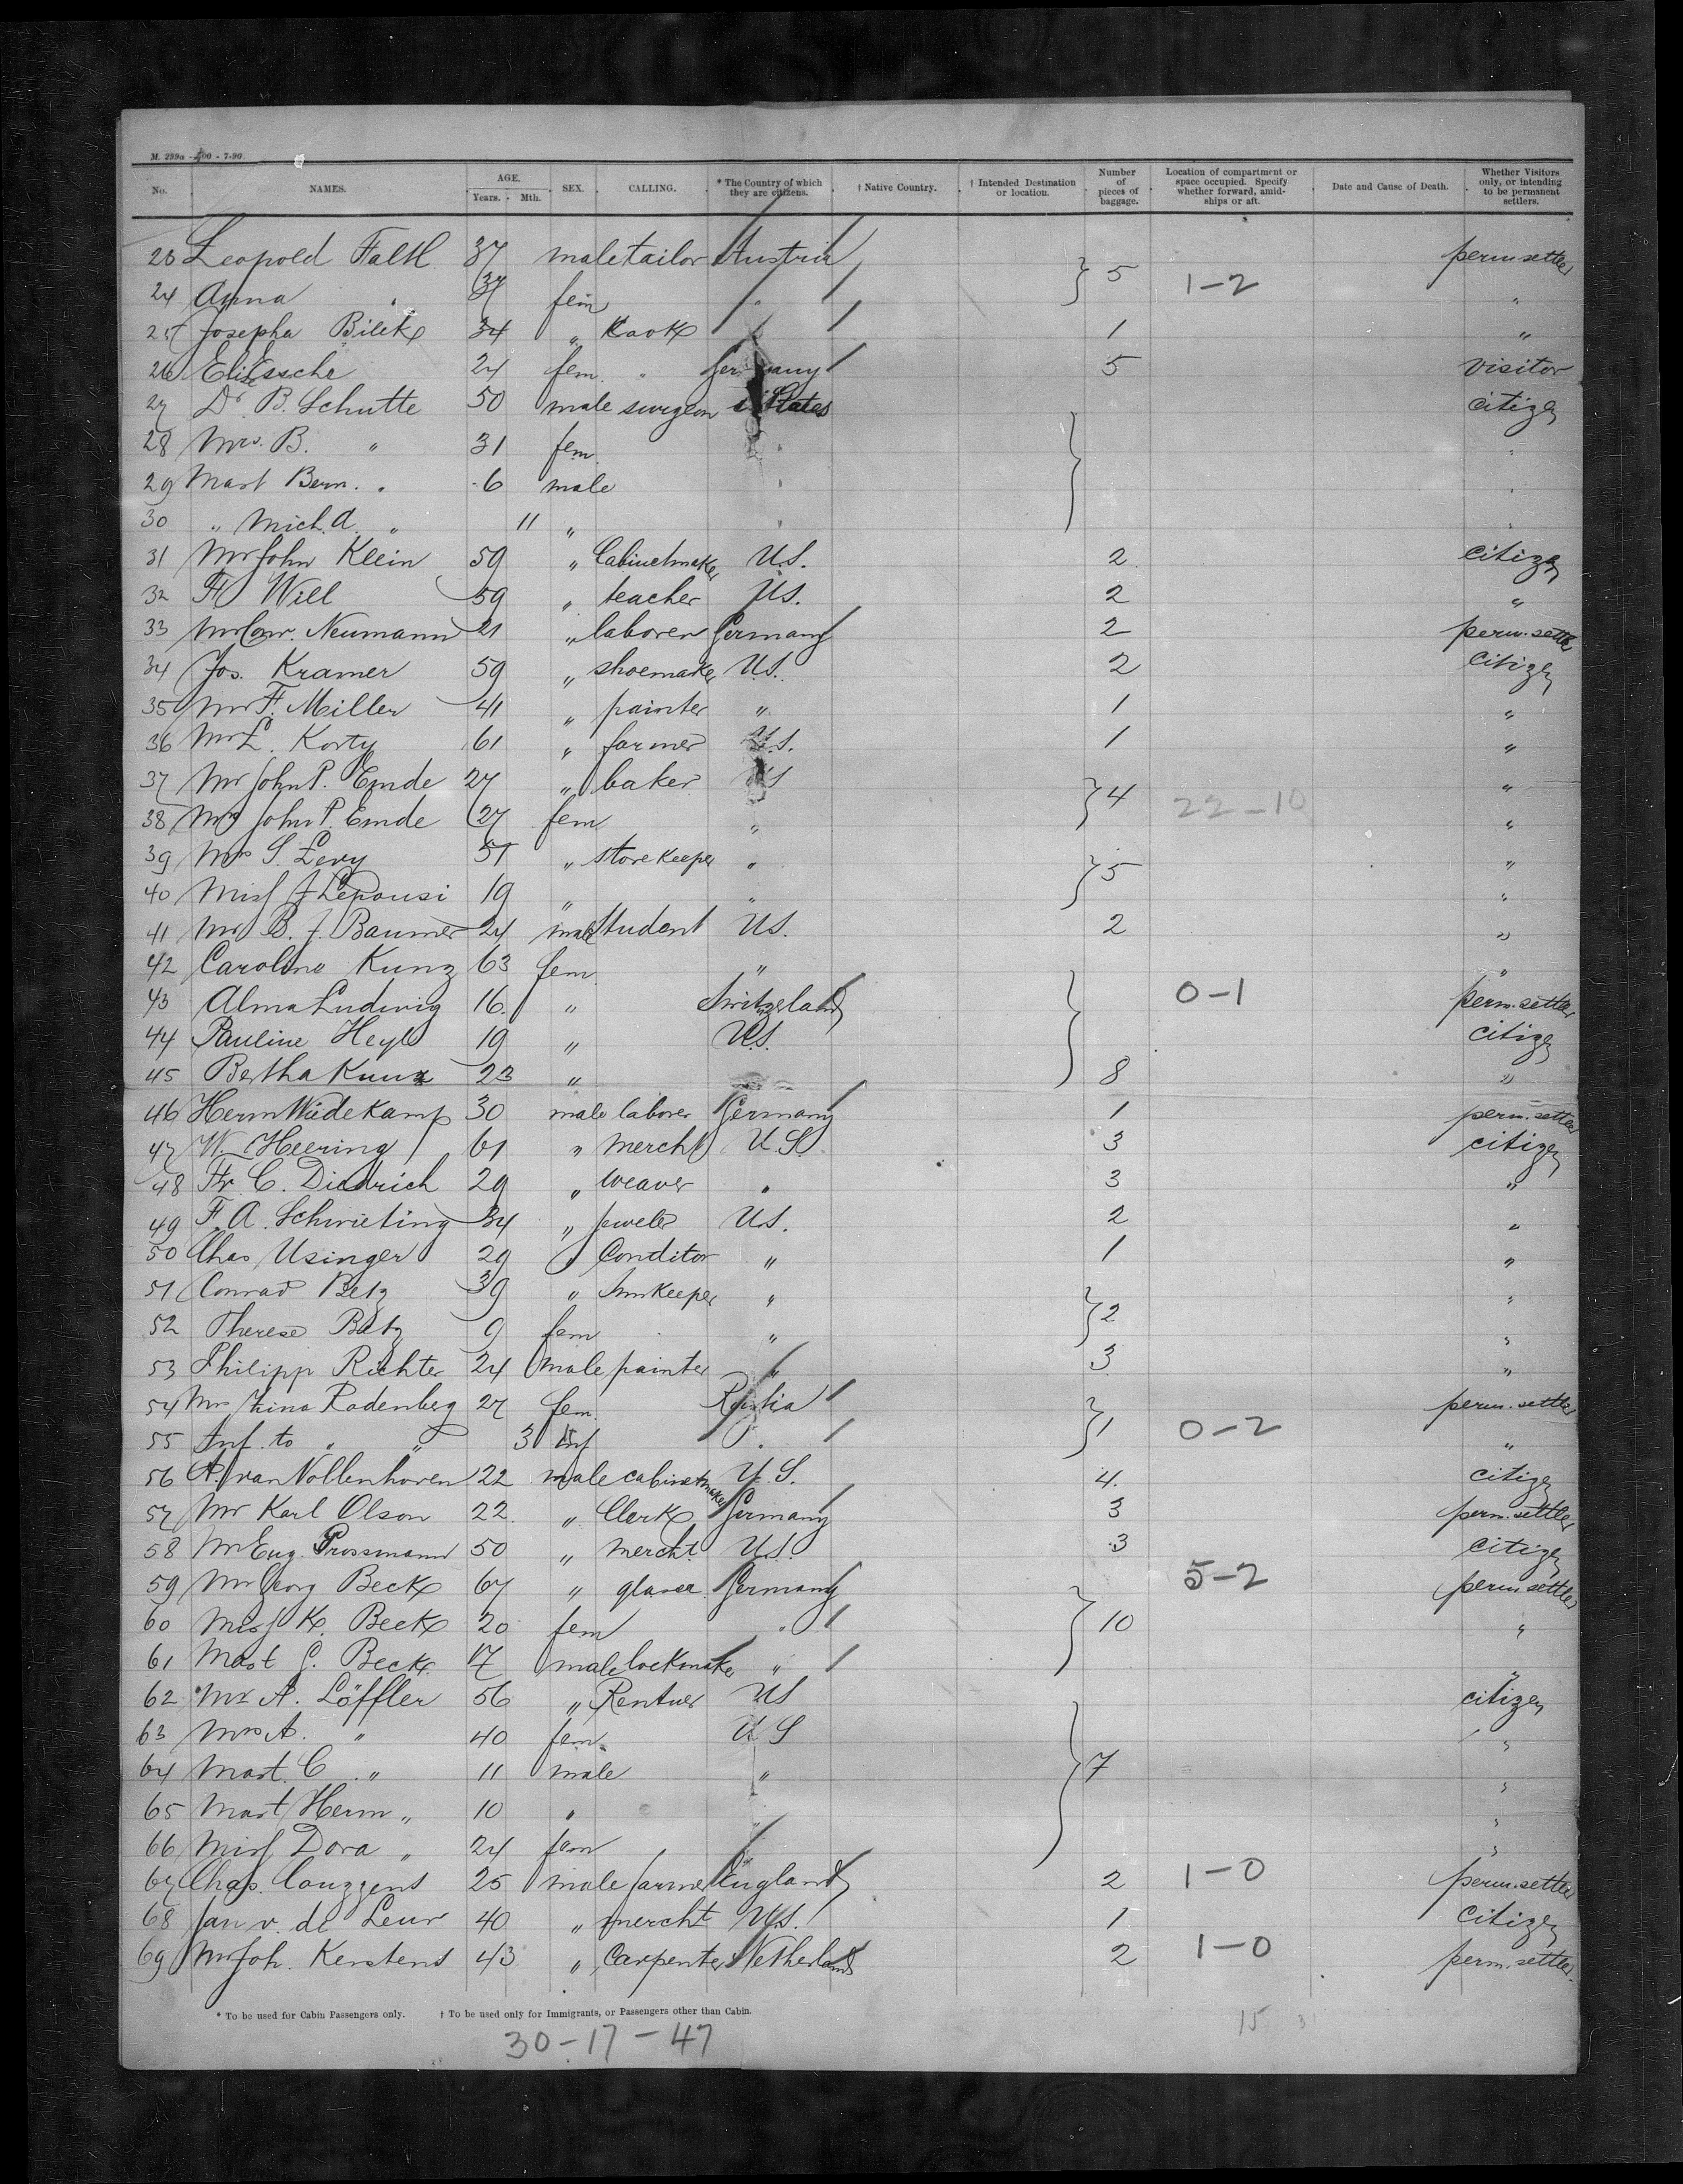 M. 299a - 400 - 7-90.
No. NAMES. AGE. Years. Mth. SEX. CALLING. * The Country of which they are citizens. † Native Country. † Intended Destination or location. Number of pieces of baggage. Location of compartment or space occupied. Specify whether forward, amidships or aft. Date and Cause of Death. Whether Visitors only, or intending to be permanent settlers.
23 Leopold Faltl 37 male tailor Austria 5 perm settler
24 Anna " 37 fem " 1-2 "
25 Josepha Bilek 34 " Kook " 1 "
26 Elis Essche 24 fem. " Germany 5 visitor
27 Dr B. Schutte 50 male surgeon States citizen
28 Mrs. B. " 31 fem. " "
29 Mast Bern. " 6 male " "
30 " Mich. A. " 11 " " "
31 Mr John Klein 59 " Cabinetmaker U.S. 2 citizen
32 H Will 59 " teacher U.S. 2 "
33 Mr Conr. Neumann 21 " laborer Germany 2 perm. settler
34 Jos. Kramer 59 " shoemaker U.S. 2 citizen
35 Mr F. Miller 41 " painter " 1 "
36 Mr L. Korty 61 " farmer U.S. 1 "
37 Mr John P. Emde 27 " baker US 4 "
38 Mrs John P. Emde 27 fem " 22-10 "
39 Mrs S. Levy 51 " storekeeper " 5 "
40 Miss J Lepousi 19 " " "
41 Mr B. J. Baumer 24 male Student U.S. 2 "
42 Caroline Kunz 63 fem " "
43 Alma Ludwig 16. " Switzerland 0-1 perm. settler
44 Pauline Heyl 19 " U.S. citizen
45 Bertha Kunz 23 " 8 "
46 Herm Wiedekamp 30 male laborer Germany 1 perm. settler
47 W. Heering 61 " mercht U.S. 3 citizen
48 Fr. C. Diedrich 29 " weaver " 3 "
49 F. A. Schwieting 34 " juweler U.S. 2 "
50 Chas Usinger 29 " Conditor " 1 "
51 Conrad Betz 39 " Innkeeper " 2 "
52 Therese Betz 9 fem " "
53 Philipp Richter 24 male painter " 3 "
54 Mrs Mina Rodenberg 27 fem. Russia 1 perm. settler
55 Inf. to " " 3 Inf " 0-2 "
56 A. van Vollenhoven 22 male cabinetmaker U.S. 4. citizen
57 Mr Karl Olson 22. " Clerk Germany 3 perm. settler
58 Mr Eug. Prossmann 50 " mercht. U.S. 3 citizen
59 Mr Georg Beck 67 " glaser Germany 5-2 perm settler
60 Miss K. Beck 20 fem " 10 "
61 Mast G. Beck 17 male lockmaker " "
62 Mr A. Löffler 56 " Rentner US citizen
63 Mrs A. " 40 fem. U S "
64 Mast. C. " 11 male " 7 "
65 Mast Herm " 10 " " "
66 Miss Dora " 24 fem " "
67 Chas. Couzzens 25 male farmer England 2 1-0 perm. settler
68 Jan v. de Leur 40 " mercht U.S. 1 citizen
69 Mr Joh. Kerstens 43 " Carpenter Netherlands 2 1-0 perm. settler.
* To be used for Cabin Passengers only. † To be used only for Immigrants, or Passengers other than Cabin.
30-17-47
15